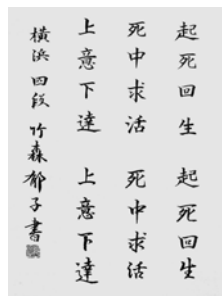 起死回生 起死回生
死中求活 死中求活
上意下達 上意下達
横浜 四段 竹森郁子書